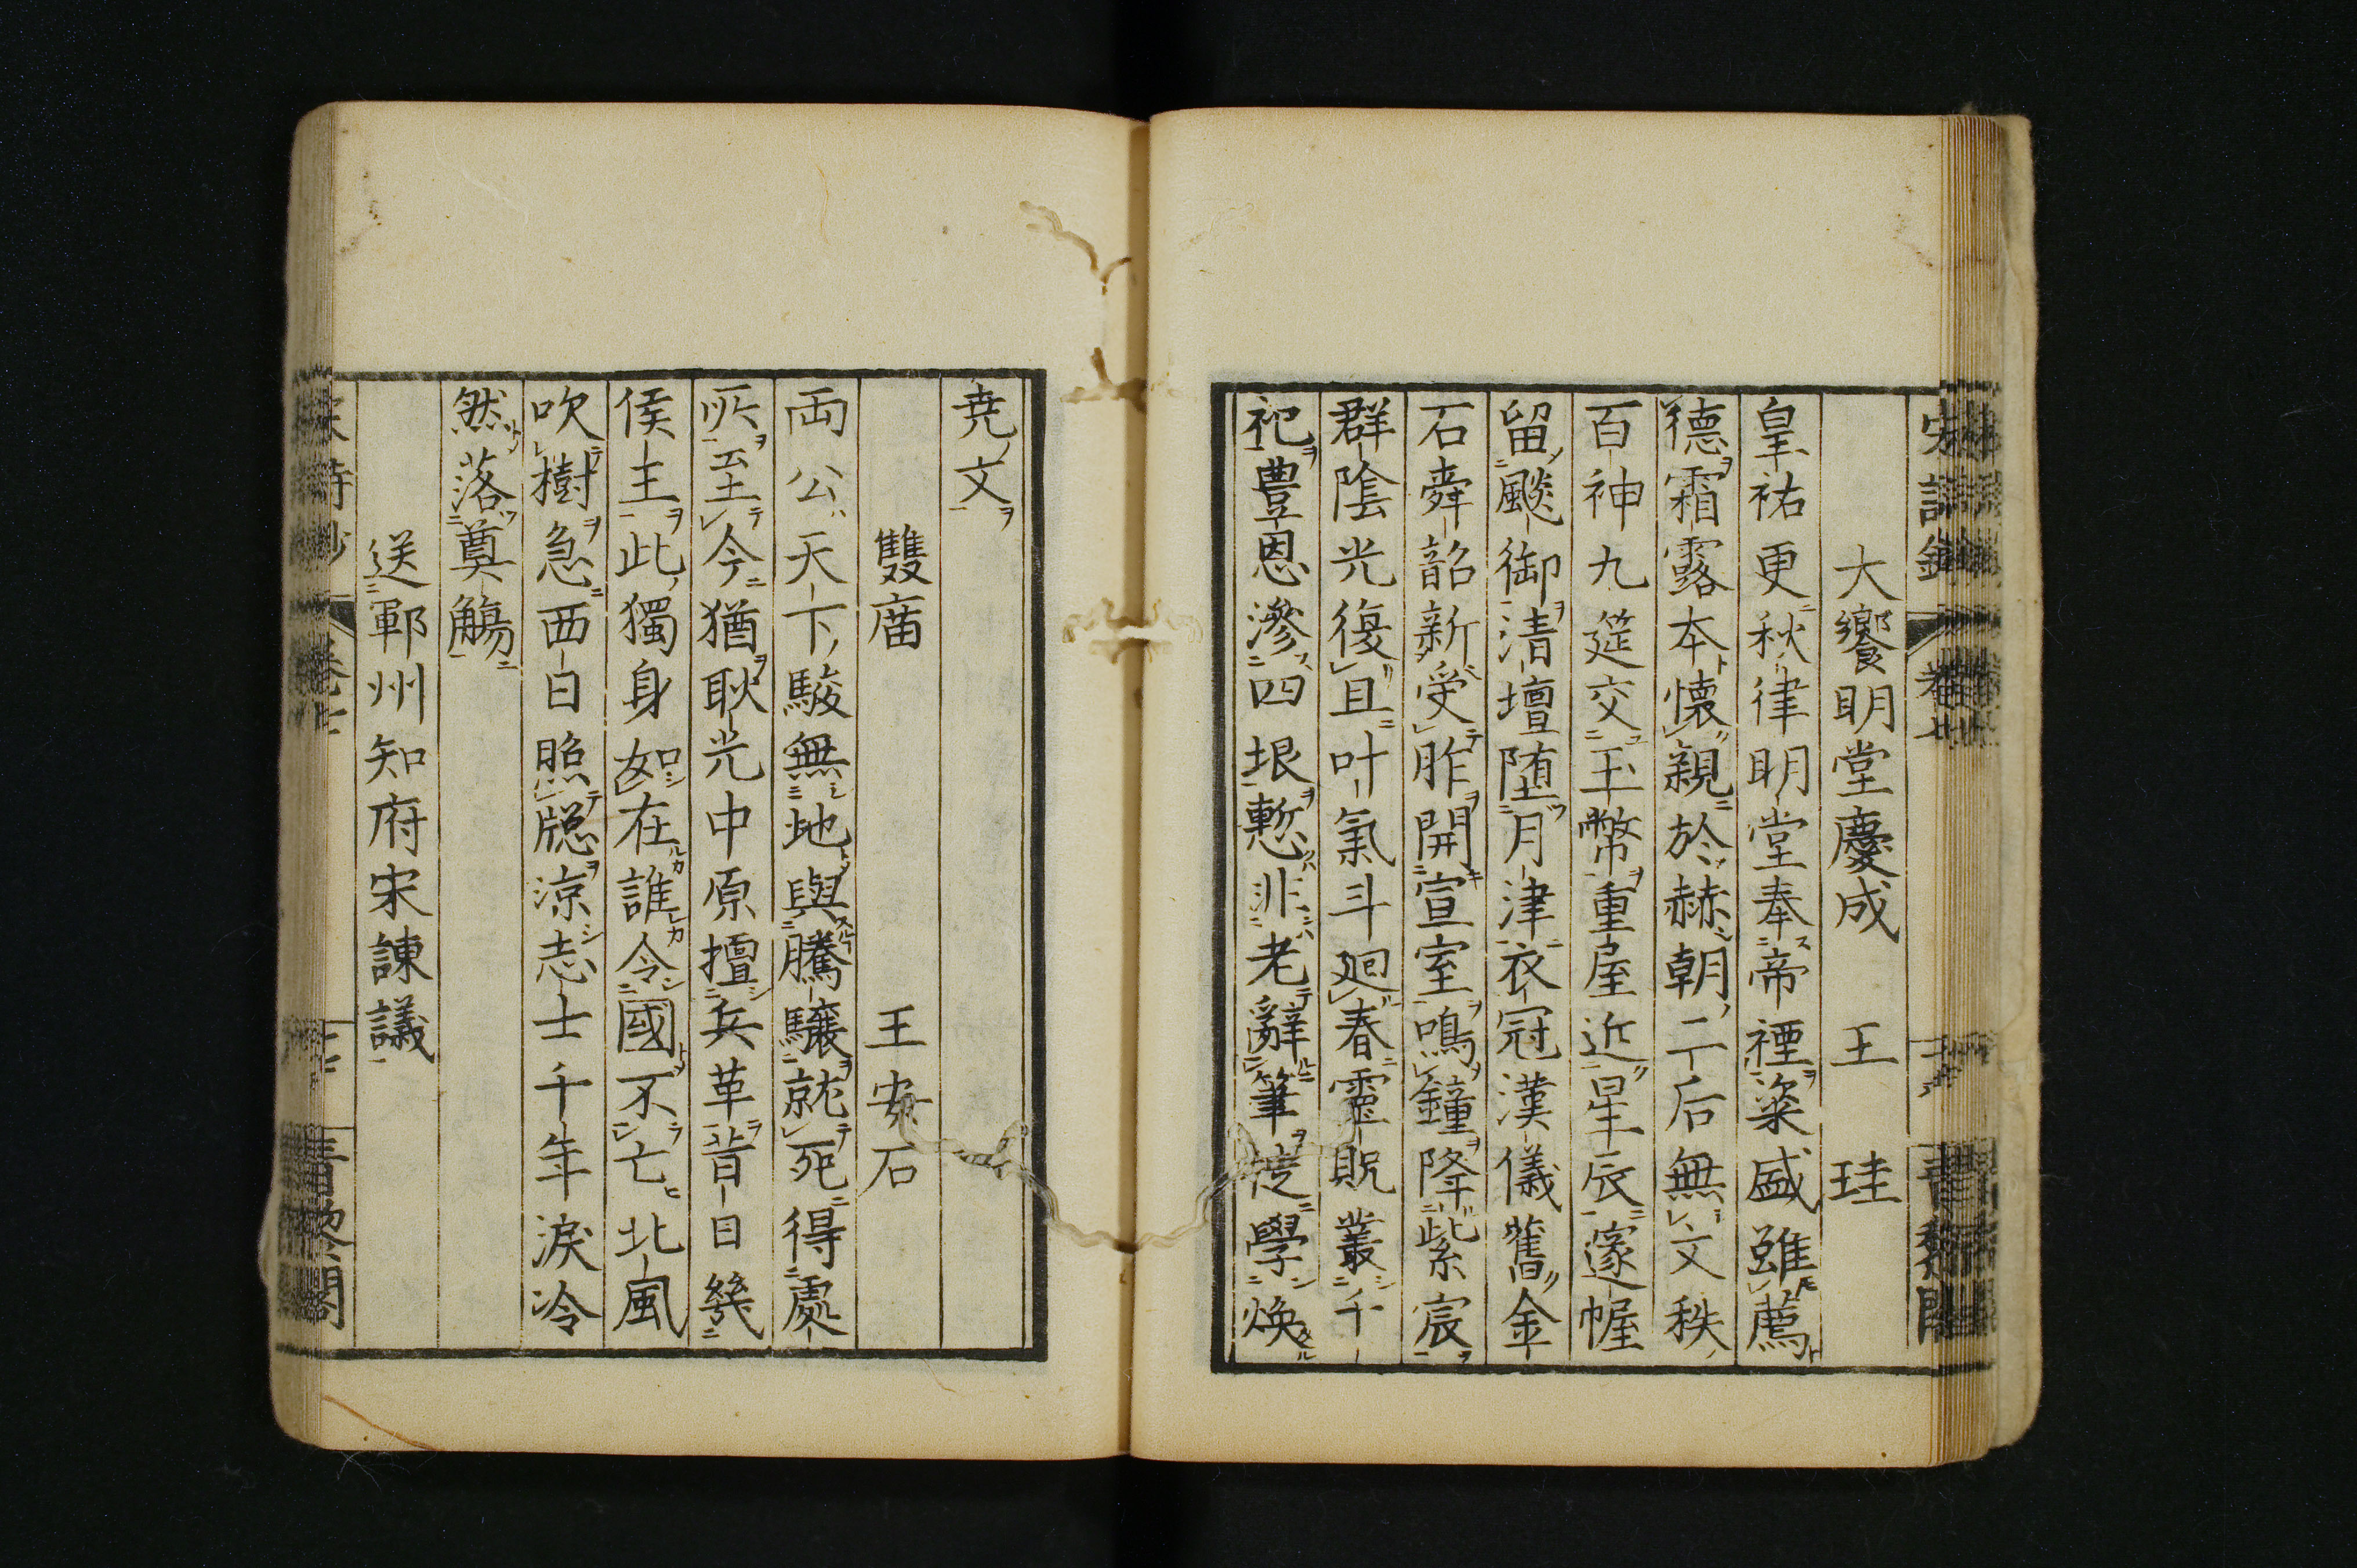 大饗明堂慶成　王　珪
皇祐更秋律明堂奉帝禋粢盛雖薦
德霜露本懷親於赫朝二后無文秩
百神九筵交玉幣重屋近星辰邃幄
留飈御淸壇堕月津衣冠漢儀舊金
石舜韶新受胙開宣室鳴鐘降紫宸
群陰光復旦叶氣斗廻春靈貺叢千
祀豊恩滲四垠慙非老辭筆 學煥
尭文
雙庿　王安石
両公天下駿無地與騰驤就死得處
所至今猶耿光中原擅兵革昔日幾
侯主此獨身恕在誰令國不亡北風
吹樹急西日照牎凉志士千年淚冷
然落奠觴
送鄆州知府宋諫議